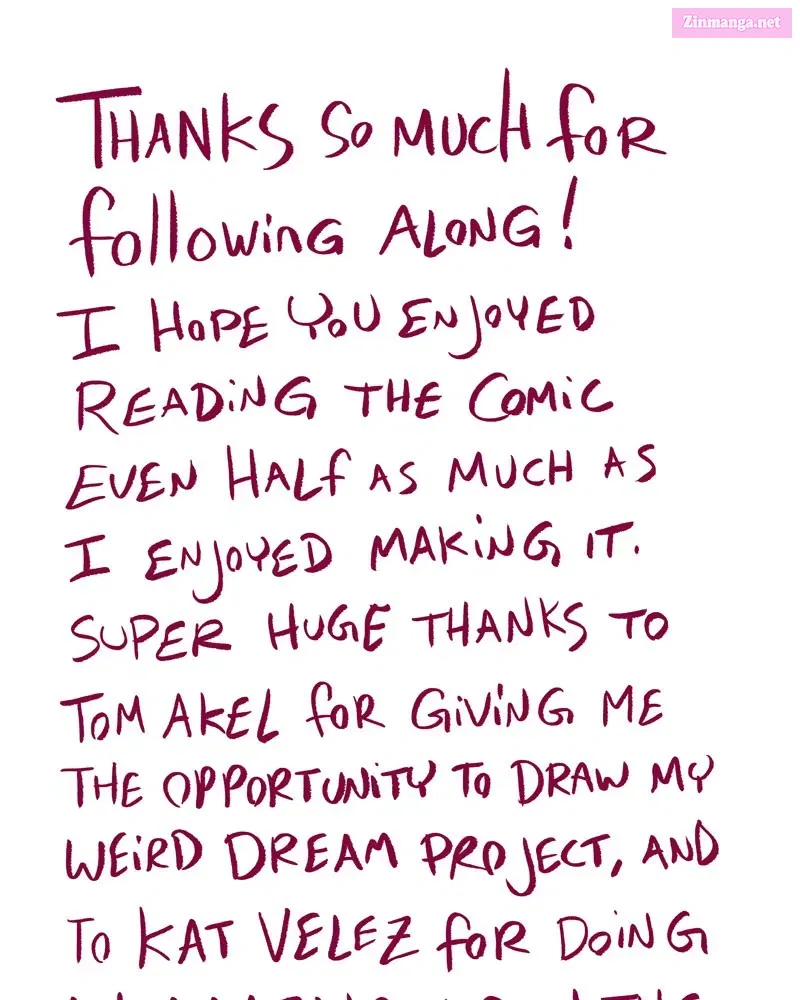 Zinmanga.net
THANKS SO MUCH FOR
following ALONG!
I HOPE YOU ENJOYED
READING THE COMIC
EVEN HALF AS MUCH AS
I ENJOYED MAKING IT.
SUPER HUGE THANKS TO
TOM AKEL FOR GIVING ME
THE OPPORTUNITY TO DRAW MY
WEIRD DREAM PROJECT, AND
TO KAT VELEZ FOR DOING